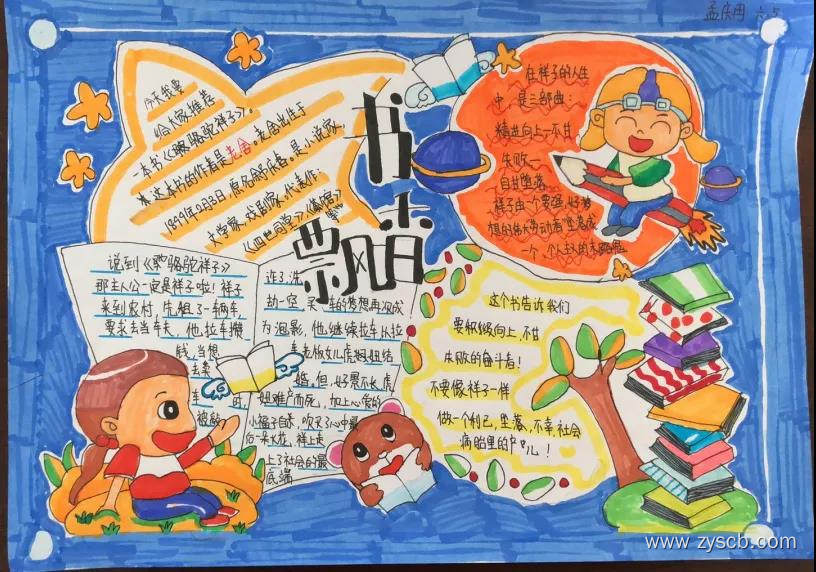 六.5
书香飘
今天我要
给大家推荐
一本书《骆驼祥子》。
本书的作者是老舍。老舍出生于
1899年2月3日原名舒庆春。是小说家、
文学家、戏剧家。代表作:
《四世同堂》《茶馆》
在祥子的人生
中,是三部曲:
精进向上一不甘
失败一
自甘堕落
祥子由一个要强、好梦
想的伟大劳动者堕落成
一个个人主义的末路鬼
说到《骆驼祥子》
那主人公一定是祥子啦!祥子
来到农村,先租了一辆车,
要求去当车夫,他,拉车攒
钱,当想
去卖
车
时,
被敲
诈了,洗
劫一空,买一车的梦想再次成
为泡影,他,继续拉车从拉
车老板女儿虎妞妞结
婚,但,好景不长,虎
妞难产而死,加上心爱的
小福子自杀,吹灭了心中最
后一朵火花,祥上走
上了社会的最
底端
这个书告诉我们
要积级向上,不甘
失败的奋斗着!
不要像祥子一样
做一个利己,坠落,不幸,社会
病胎里的产儿!
www.zyscb.com